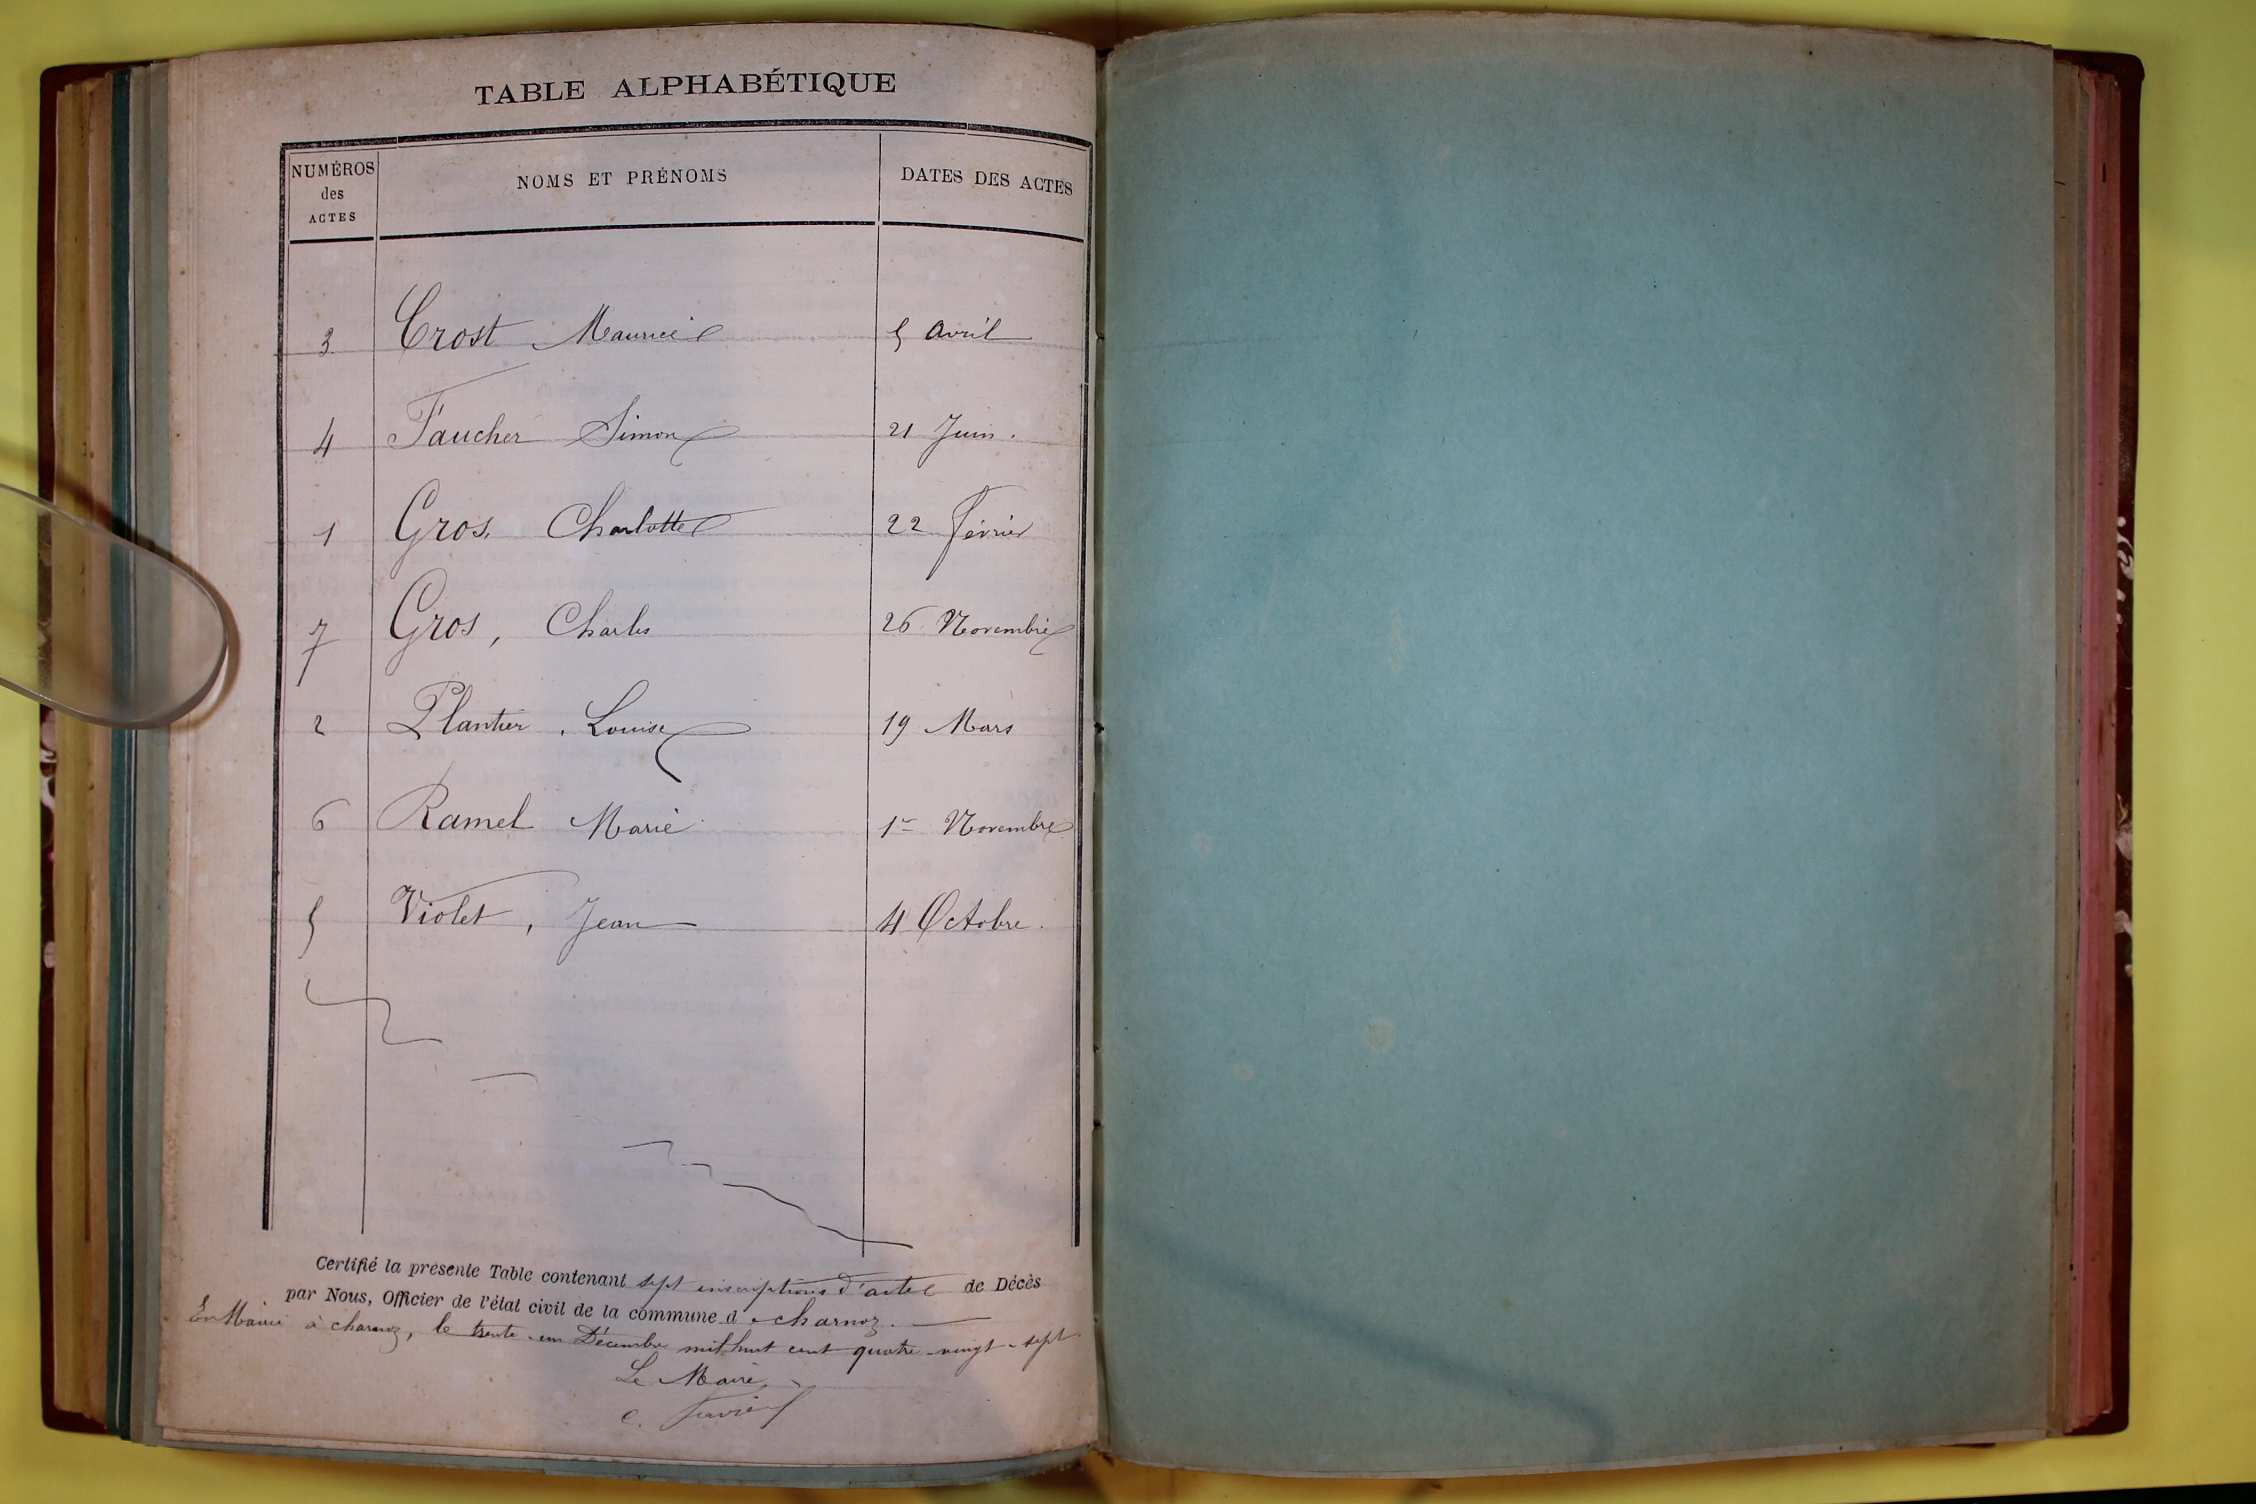 TABLE ALPHABÉTIQUE
NUMÉROS des ACTES NOMS ET PRÉNOMS DATES DES ACTES
3 Crost Maurice 5 Avril
4 Faucher Simon 21 Juin.
1 Gros, Charlotte 22 Février
7 Gros, Charles 26 Novembre
2 Plantier, Louise 19 Mars
6 Ramel Marie 1er Novembre
5 Violet, Jean 4 Octobre.
Certifié la présente Table contenant sept inscriptions d'actes de Décès
par Nous, Officier de l'état civil de la commune d charnoz.
En Mairie à charnoz, le trente-un Décembre mil huit cent quatre-vingt-sept
Le Maire,